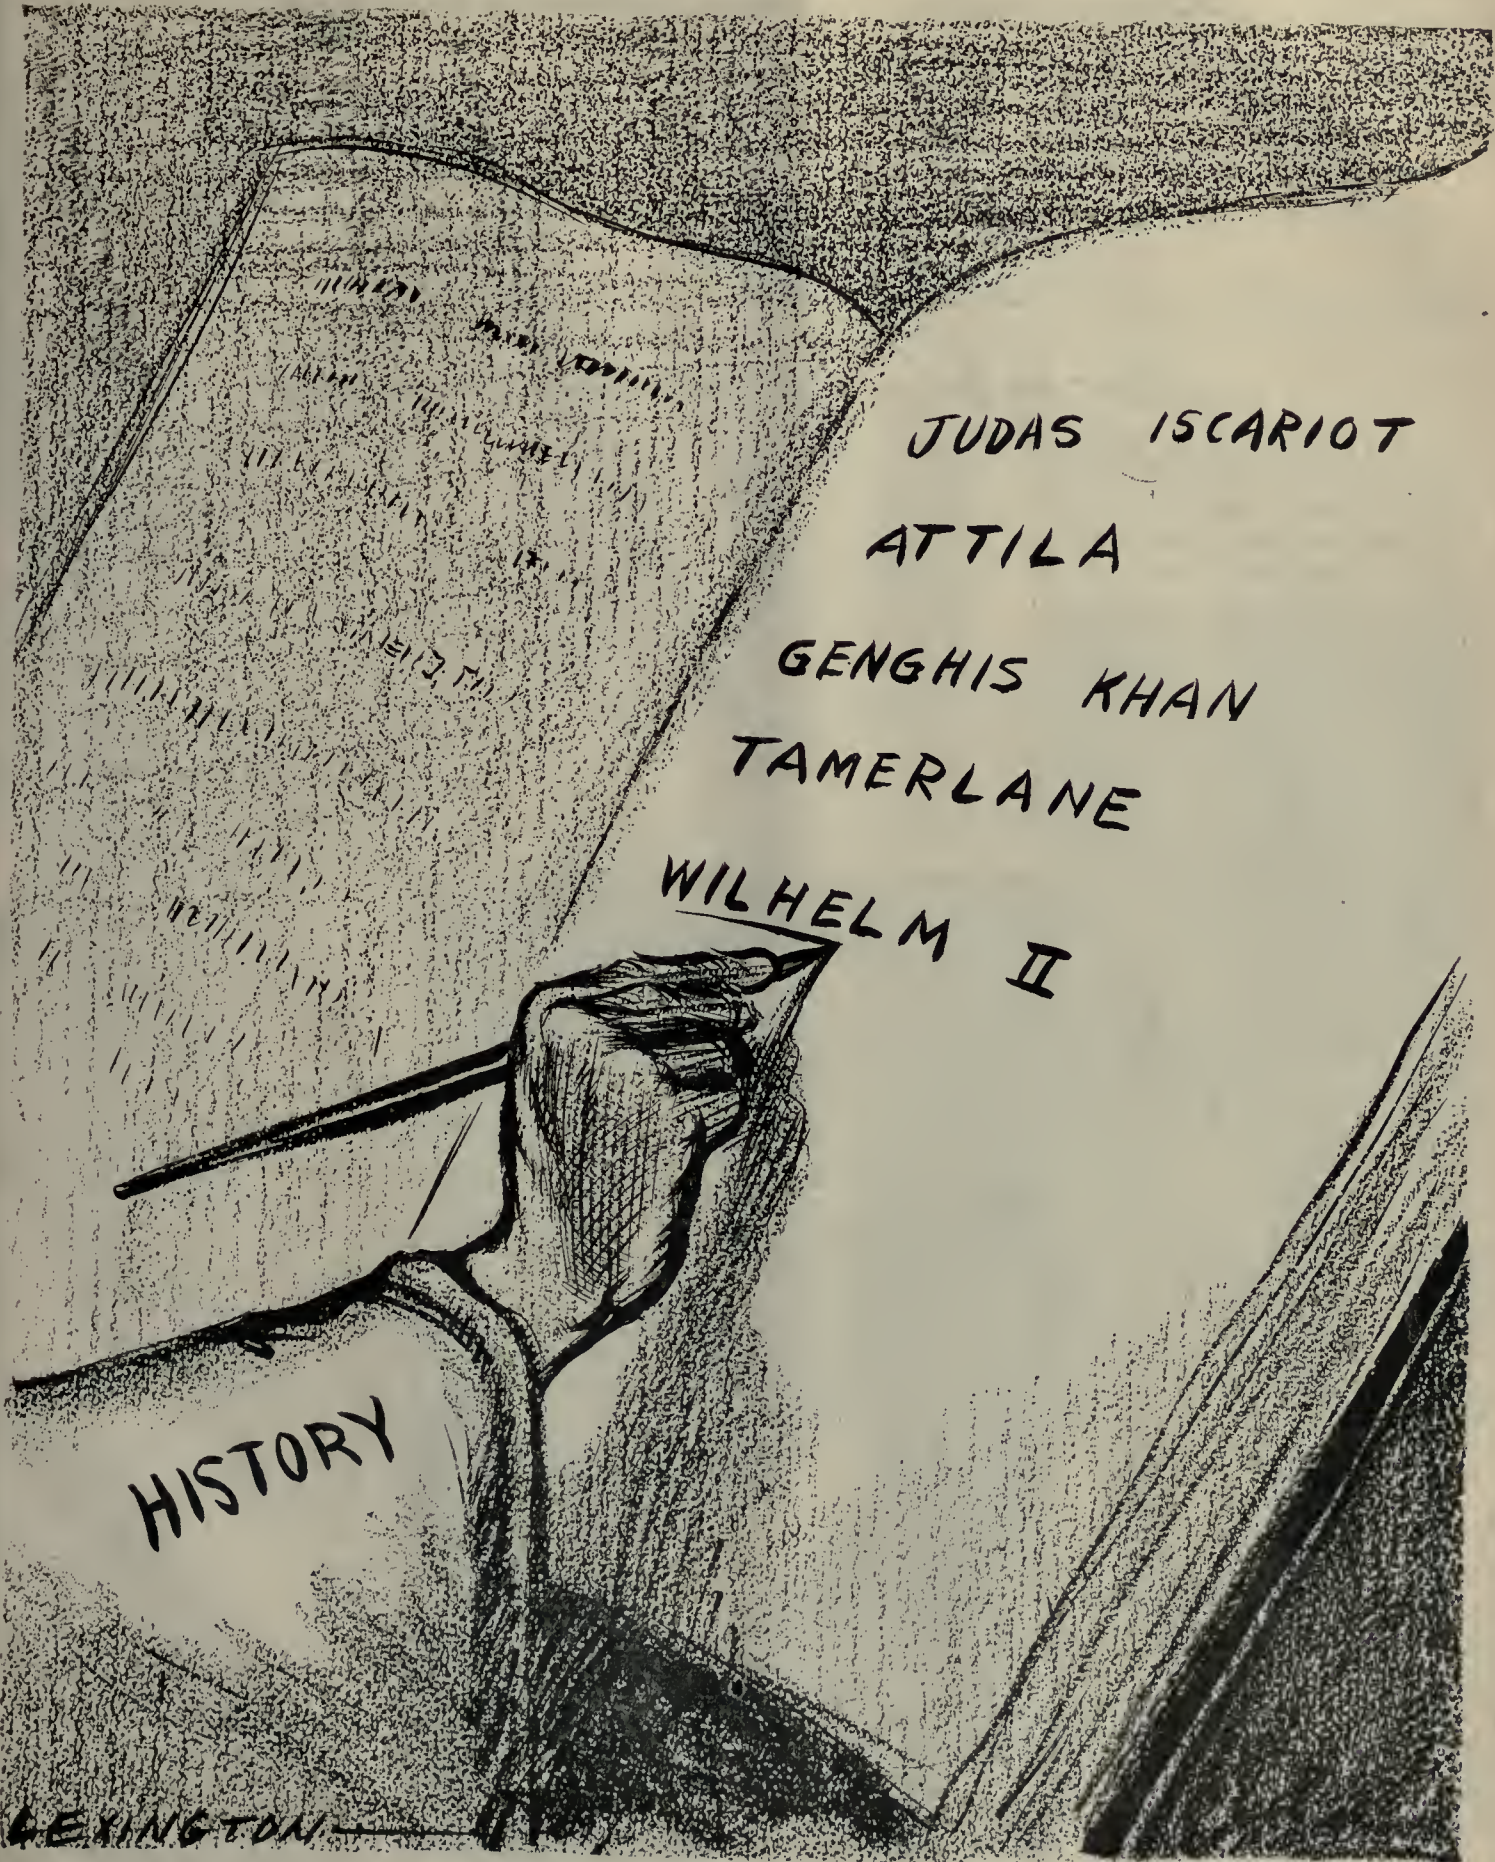 JUDAS ISCARIOT
ATTILA
GENGHIS KHAN
TAMERLANE
WILHELM II
HISTORY
LEXINGTON